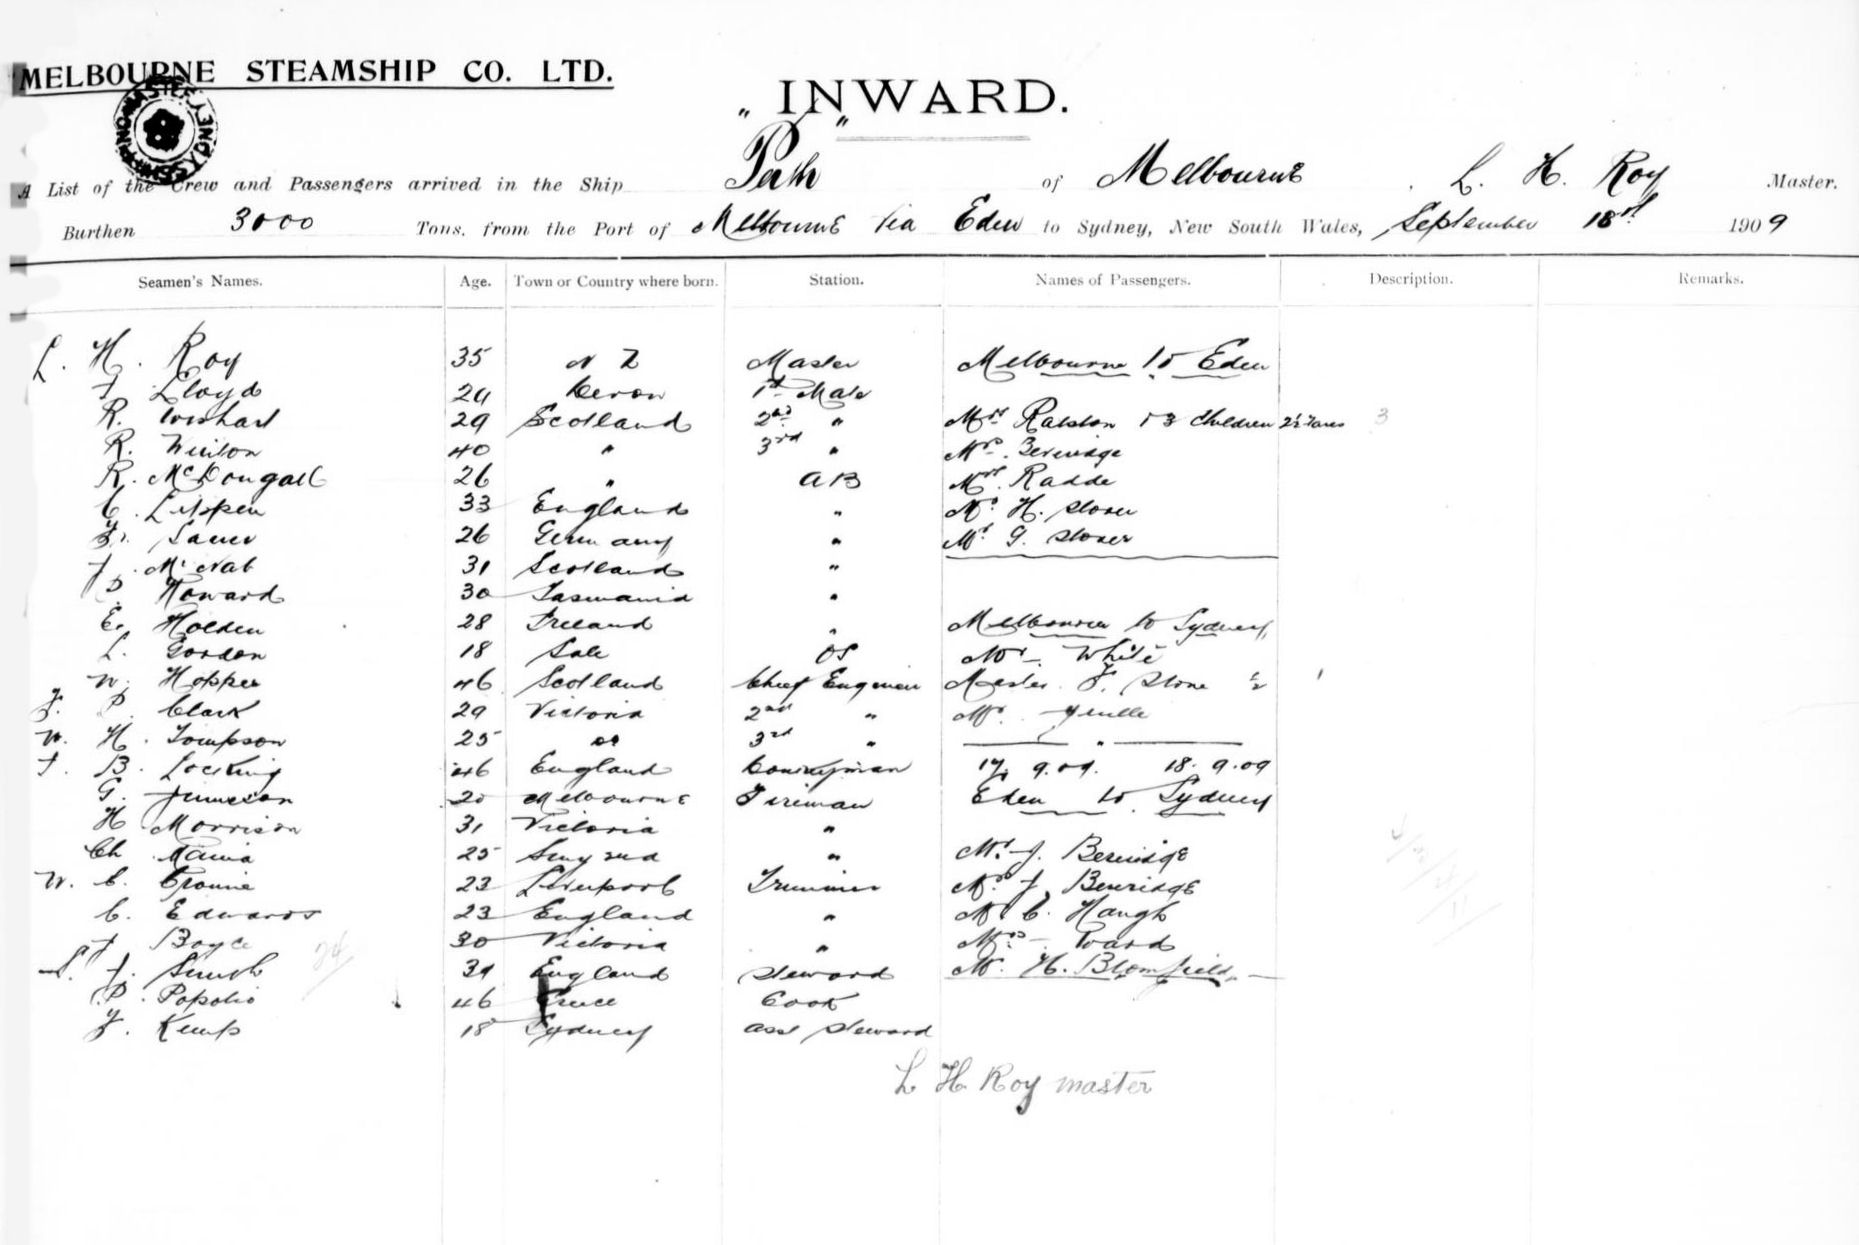 MELBOURNE STEAMSHIP CO. LTD.
INWARD.
" Perth "
A List of the Crew and Passengers arrived in the Ship Perth of Melbourne, L. H. Roy Master.
Burthen 3000 Tons, from the Port of Melbourne Via Eden to Sydney, New South Wales, September 18th 1909
Seamen's Names. Age. Town or Country where born. Station. Names of Passengers. Description. Remarks.
L. H. Roy 35 N Z Master Melbourne to Eden
Lloyd Devon 1st Mate
R. Wishart 29 Scotland 2nd " Mrs Ralston & 3 Children 2½ Fares 3
R. Winton 40 " 3rd " Mrs. Beveridge
R. McDougall 26 " AB Mrs. Radde
C. 33 England " Mr H.
26 Germany " Mr G.
McNab 31 Scotland "
Howard 30 Tasmania "
E. Holden 28 Ireland " Melbourne to Sydney
L. Gordon 18 Sale OS Mr White
W. Hopper 46 Scotland Chief Engineer Master F. Stone ½
J. P. Clark 29 Victoria 2nd " Mr
W. H. Tompson 25 3rd " "
B. 46 England 17.9.09. 18.9.09
G. Jameson 20 Melbourne Fireman Eden to Sydney
H Morrison 31 Victoria "
Ch 25 Smyrna " Mr J. Beveridge
W. C. 23 Liverpool Trimmer Mrs J. Beveridge
C. Edwards 23 England " Mr C. Haugh
Boyce 30 Victoria " Mrs Ward
Smith England Steward Mr. H. Blomfield
P. 46 Greece Cook
Kemp 18 Sydney Asst Steward
L H Roy master